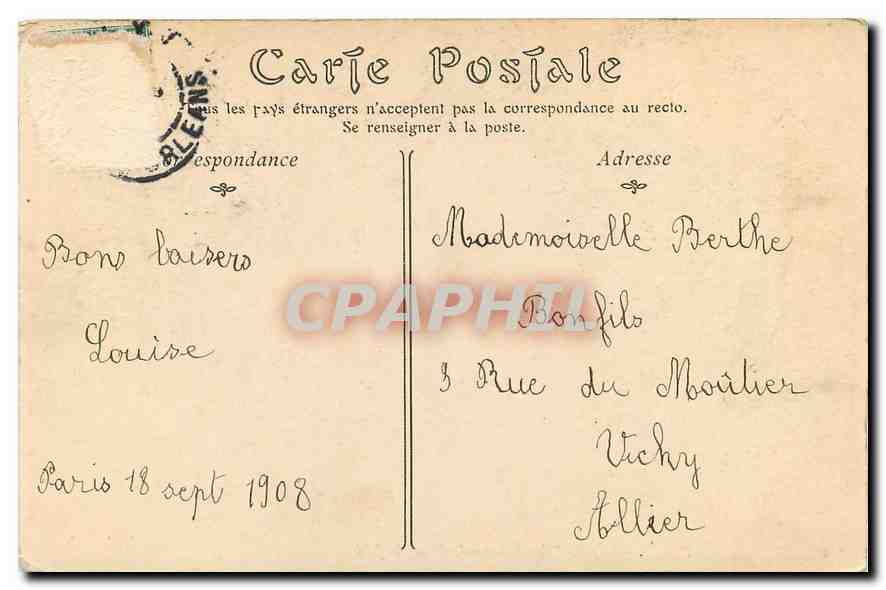 Carte Postale
Tous les pays étrangers n'acceptent pas la correspondance au recto.
Se renseigner à la poste.
RLEANS
respondance
Bons baisers
Louise
Paris 18 sept 1908
Adresse
Mademoiselle Berthe
Bonfils
3 Rue du Moûtier
Vichy
Allier
CPAPHIL